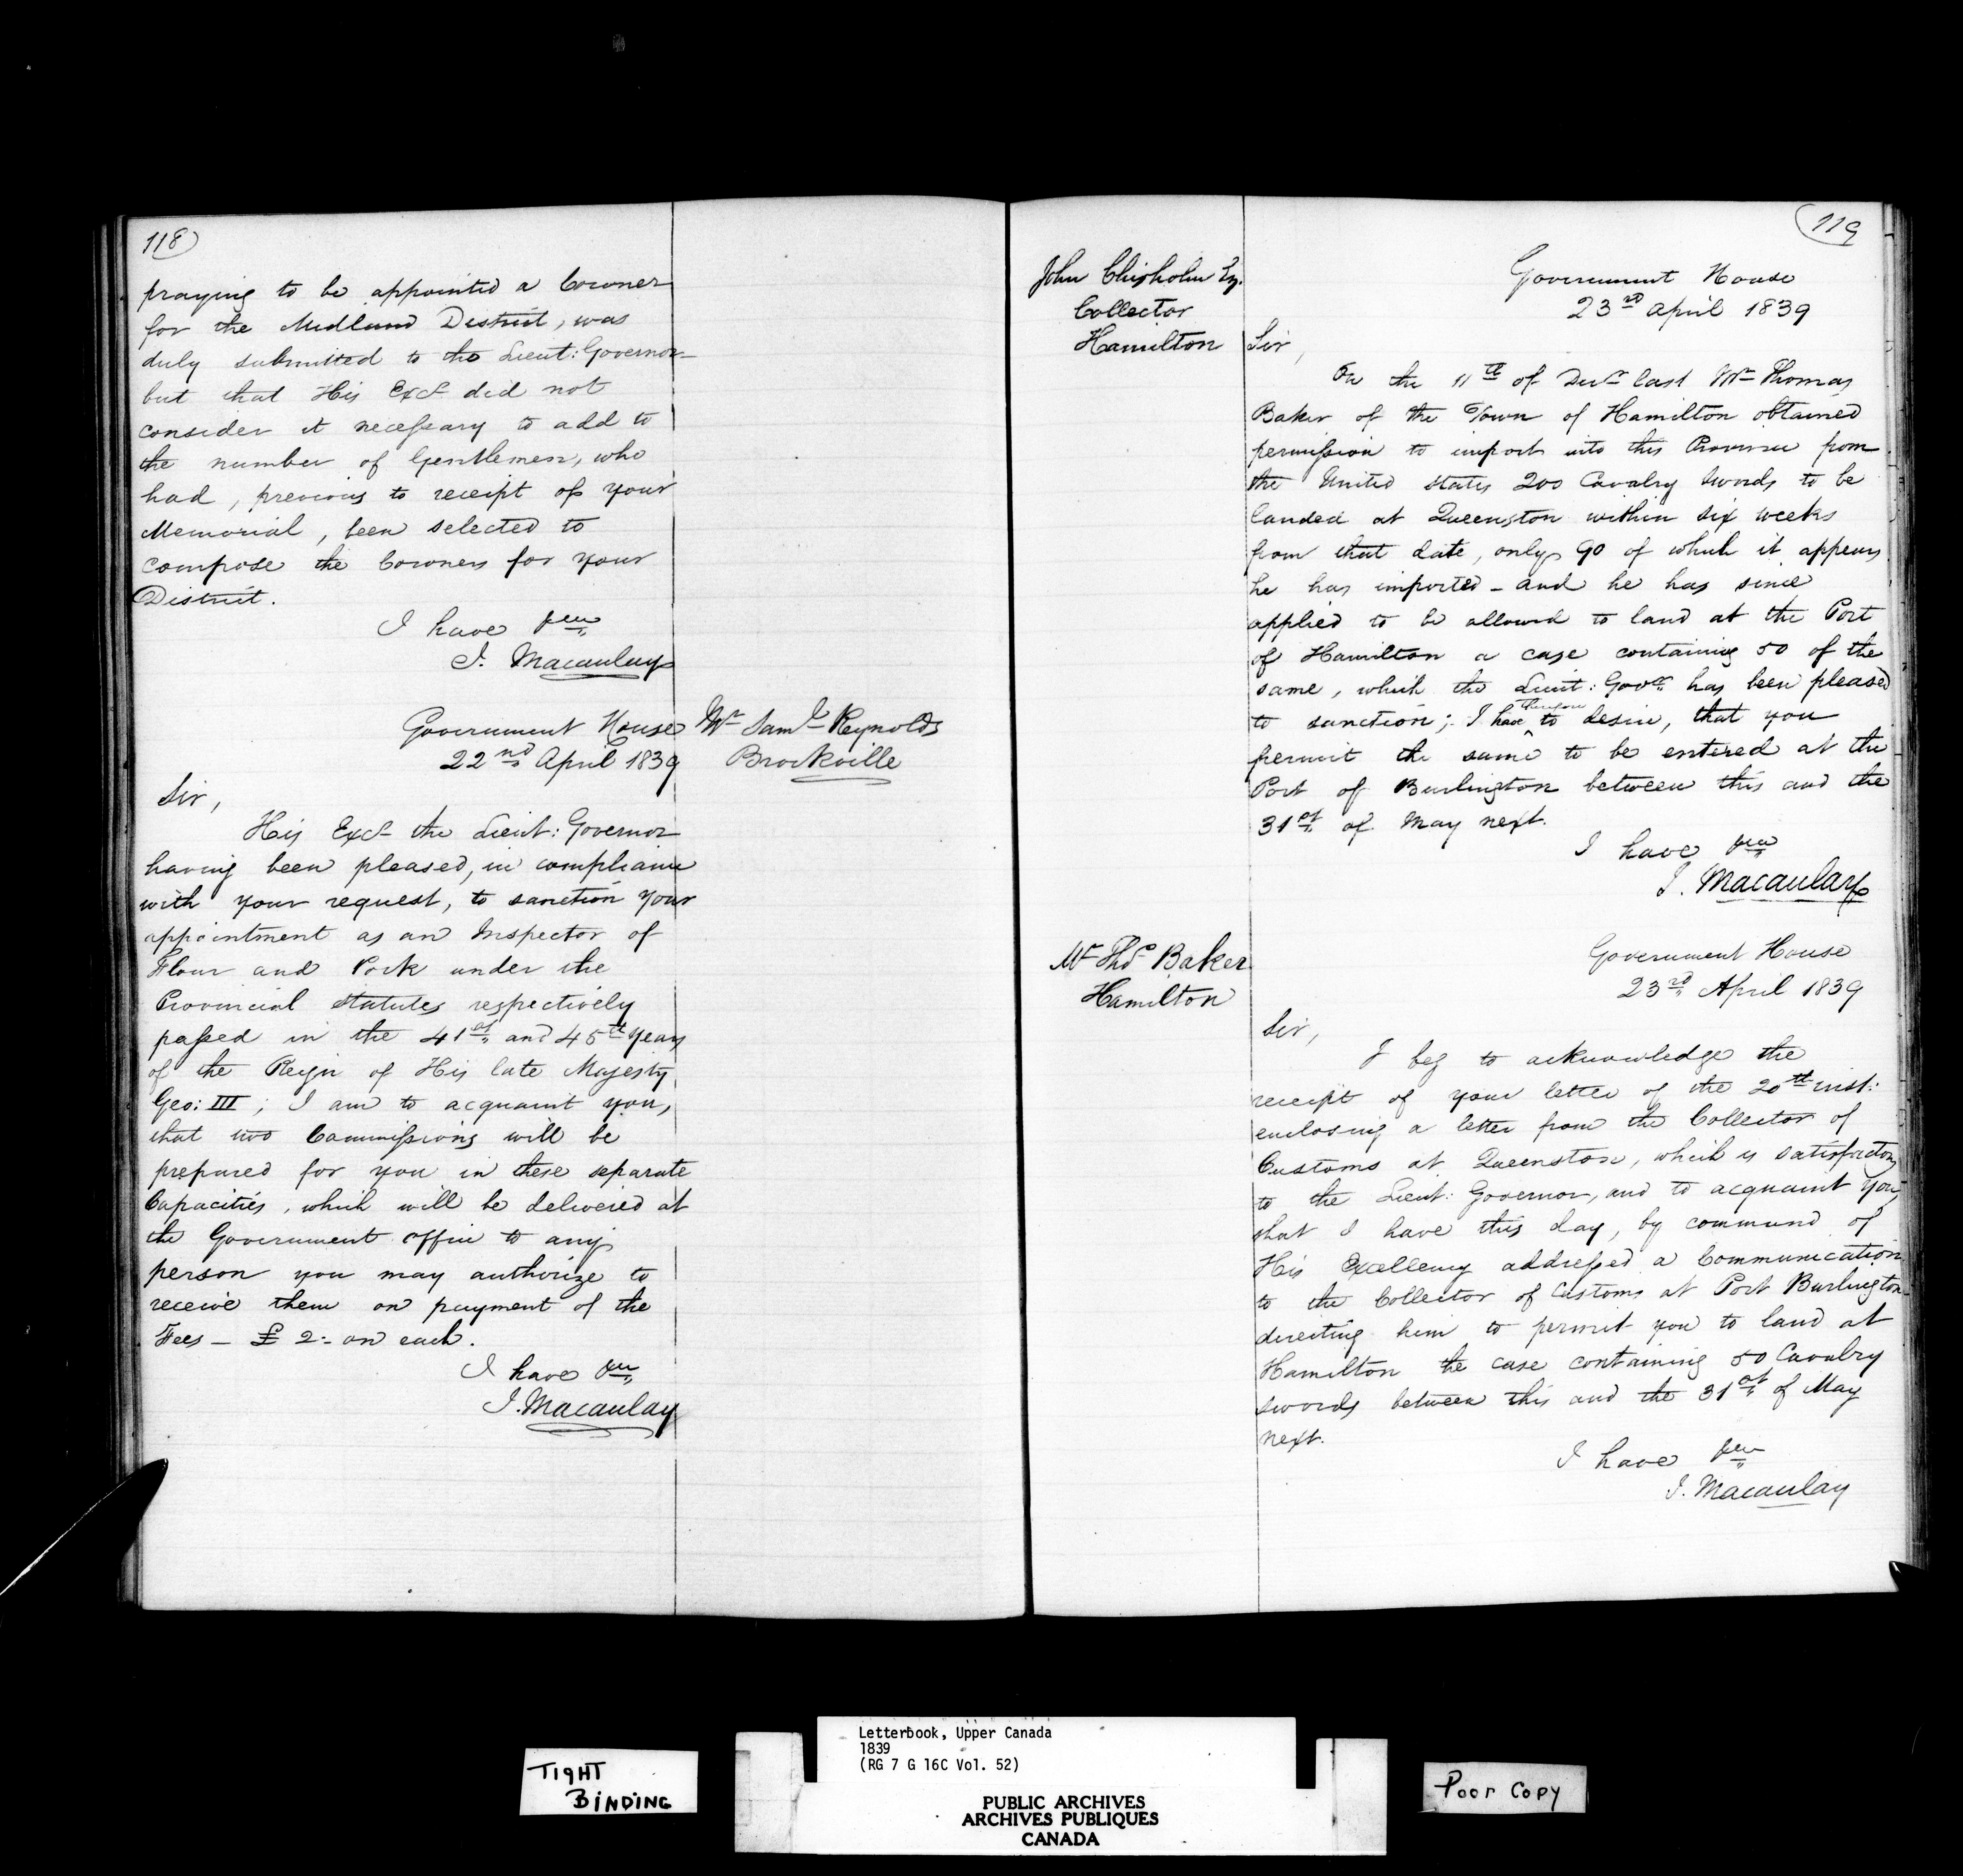 118
praying to be appointed a Coroner
for the Midland District, was
duly submitted to the Lieut: Governor
but that His Excy did not
consider it necessary to add to
the number of Gentlemen, who
had, previous to receipt of your
Memorial, been selected to
compose the Coroners for your
District.
I have &ca
J. Macaulay
Government House
22nd April 1839
Mr Saml Reynolds
Brockville
Sir,
His Excy the Lieut: Governor
having been pleased, in compliance
with your request, to sanction your
appointment as an Inspector of
Flour and Pork under the
Provincial Statutes respectively
passed in the 41st and 45th years
of the Reign of His late Majesty
Geo: III; I am to acquaint you,
that two Commissions will be
prepared for you in these separate
Capacities, which will be delivered at
the Government office to any
person you may authorize to
receive them on payment of the
Fees – £ 2:- on each.
I have &ca
J. Macaulay
119
John Chisholm Esq.
Collector
Hamilton
Government House
23rd April 1839
Sir,
On the 11th of Decr last Mr Thomas
Baker of the Town of Hamilton obtained
permission to import into this Province from
the United States 200 Cavalry Swords to be
landed at Queenston within six weeks
from that date, only 90 of which it appears
he has imported – and he has since
applied to be allowed to land at the Port
of Hamilton a case containing 50 of the
same, which the Lieut: Govor has been pleased
to sanction; I have therefore to desire, that you
permit the same to be entered at the
Port of Burlington between this and the
31st of May next.
I have &ca
J. Macaulay
Mr Thos Baker
Hamilton
Government House
23rd April 1839
Sir,
I beg to acknowledge the
receipt of your letter of the 20th inst:
enclosing a letter from the Collector of
Customs at Queenston, which is satisfactory
to the Lieut: Governor, and to acquaint you,
that I have this day, by command of
His Excellency addressed a Communication
to the Collector of Customs at Port Burlington
directing him to permit you to land at
Hamilton the case containing 50 Cavalry
swords between this and the 31st of May
next.
I have &ca
J. Macaulay
TIGHT
BINDING
Letterbook, Upper Canada
1839
(RG 7 G 16C Vol. 52)
PUBLIC ARCHIVES
ARCHIVES PUBLIQUES
CANADA
Poor Copy